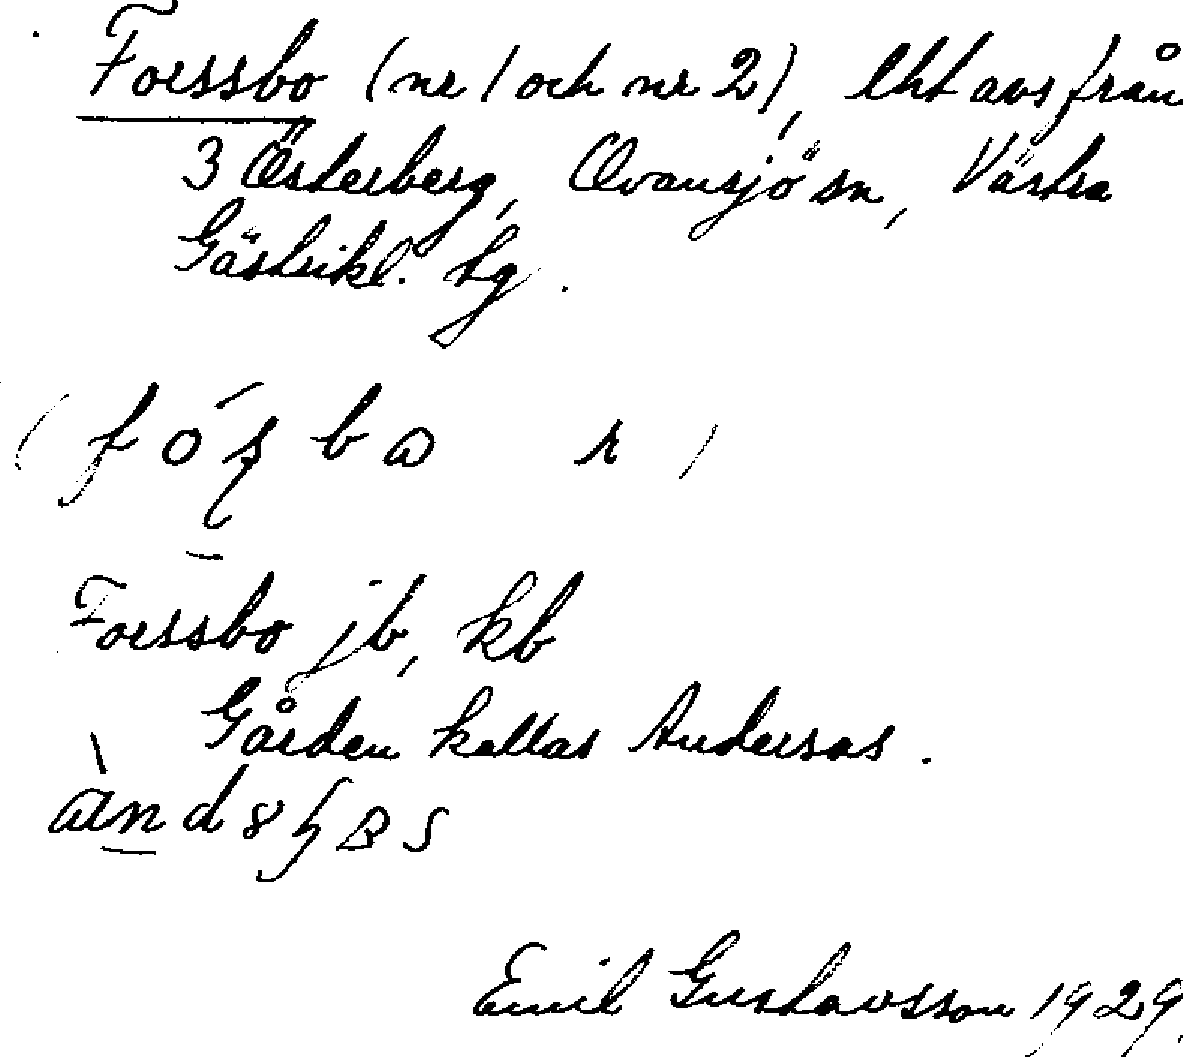 Forssbo (nr 1 och nr 2), lht avs från
3 Österberg, Ovansjö sn, Västra
Gästrikl. hg.
Forssbo jb, kb
Gården kallas Andersas.
Emil Gustavsson 1929.